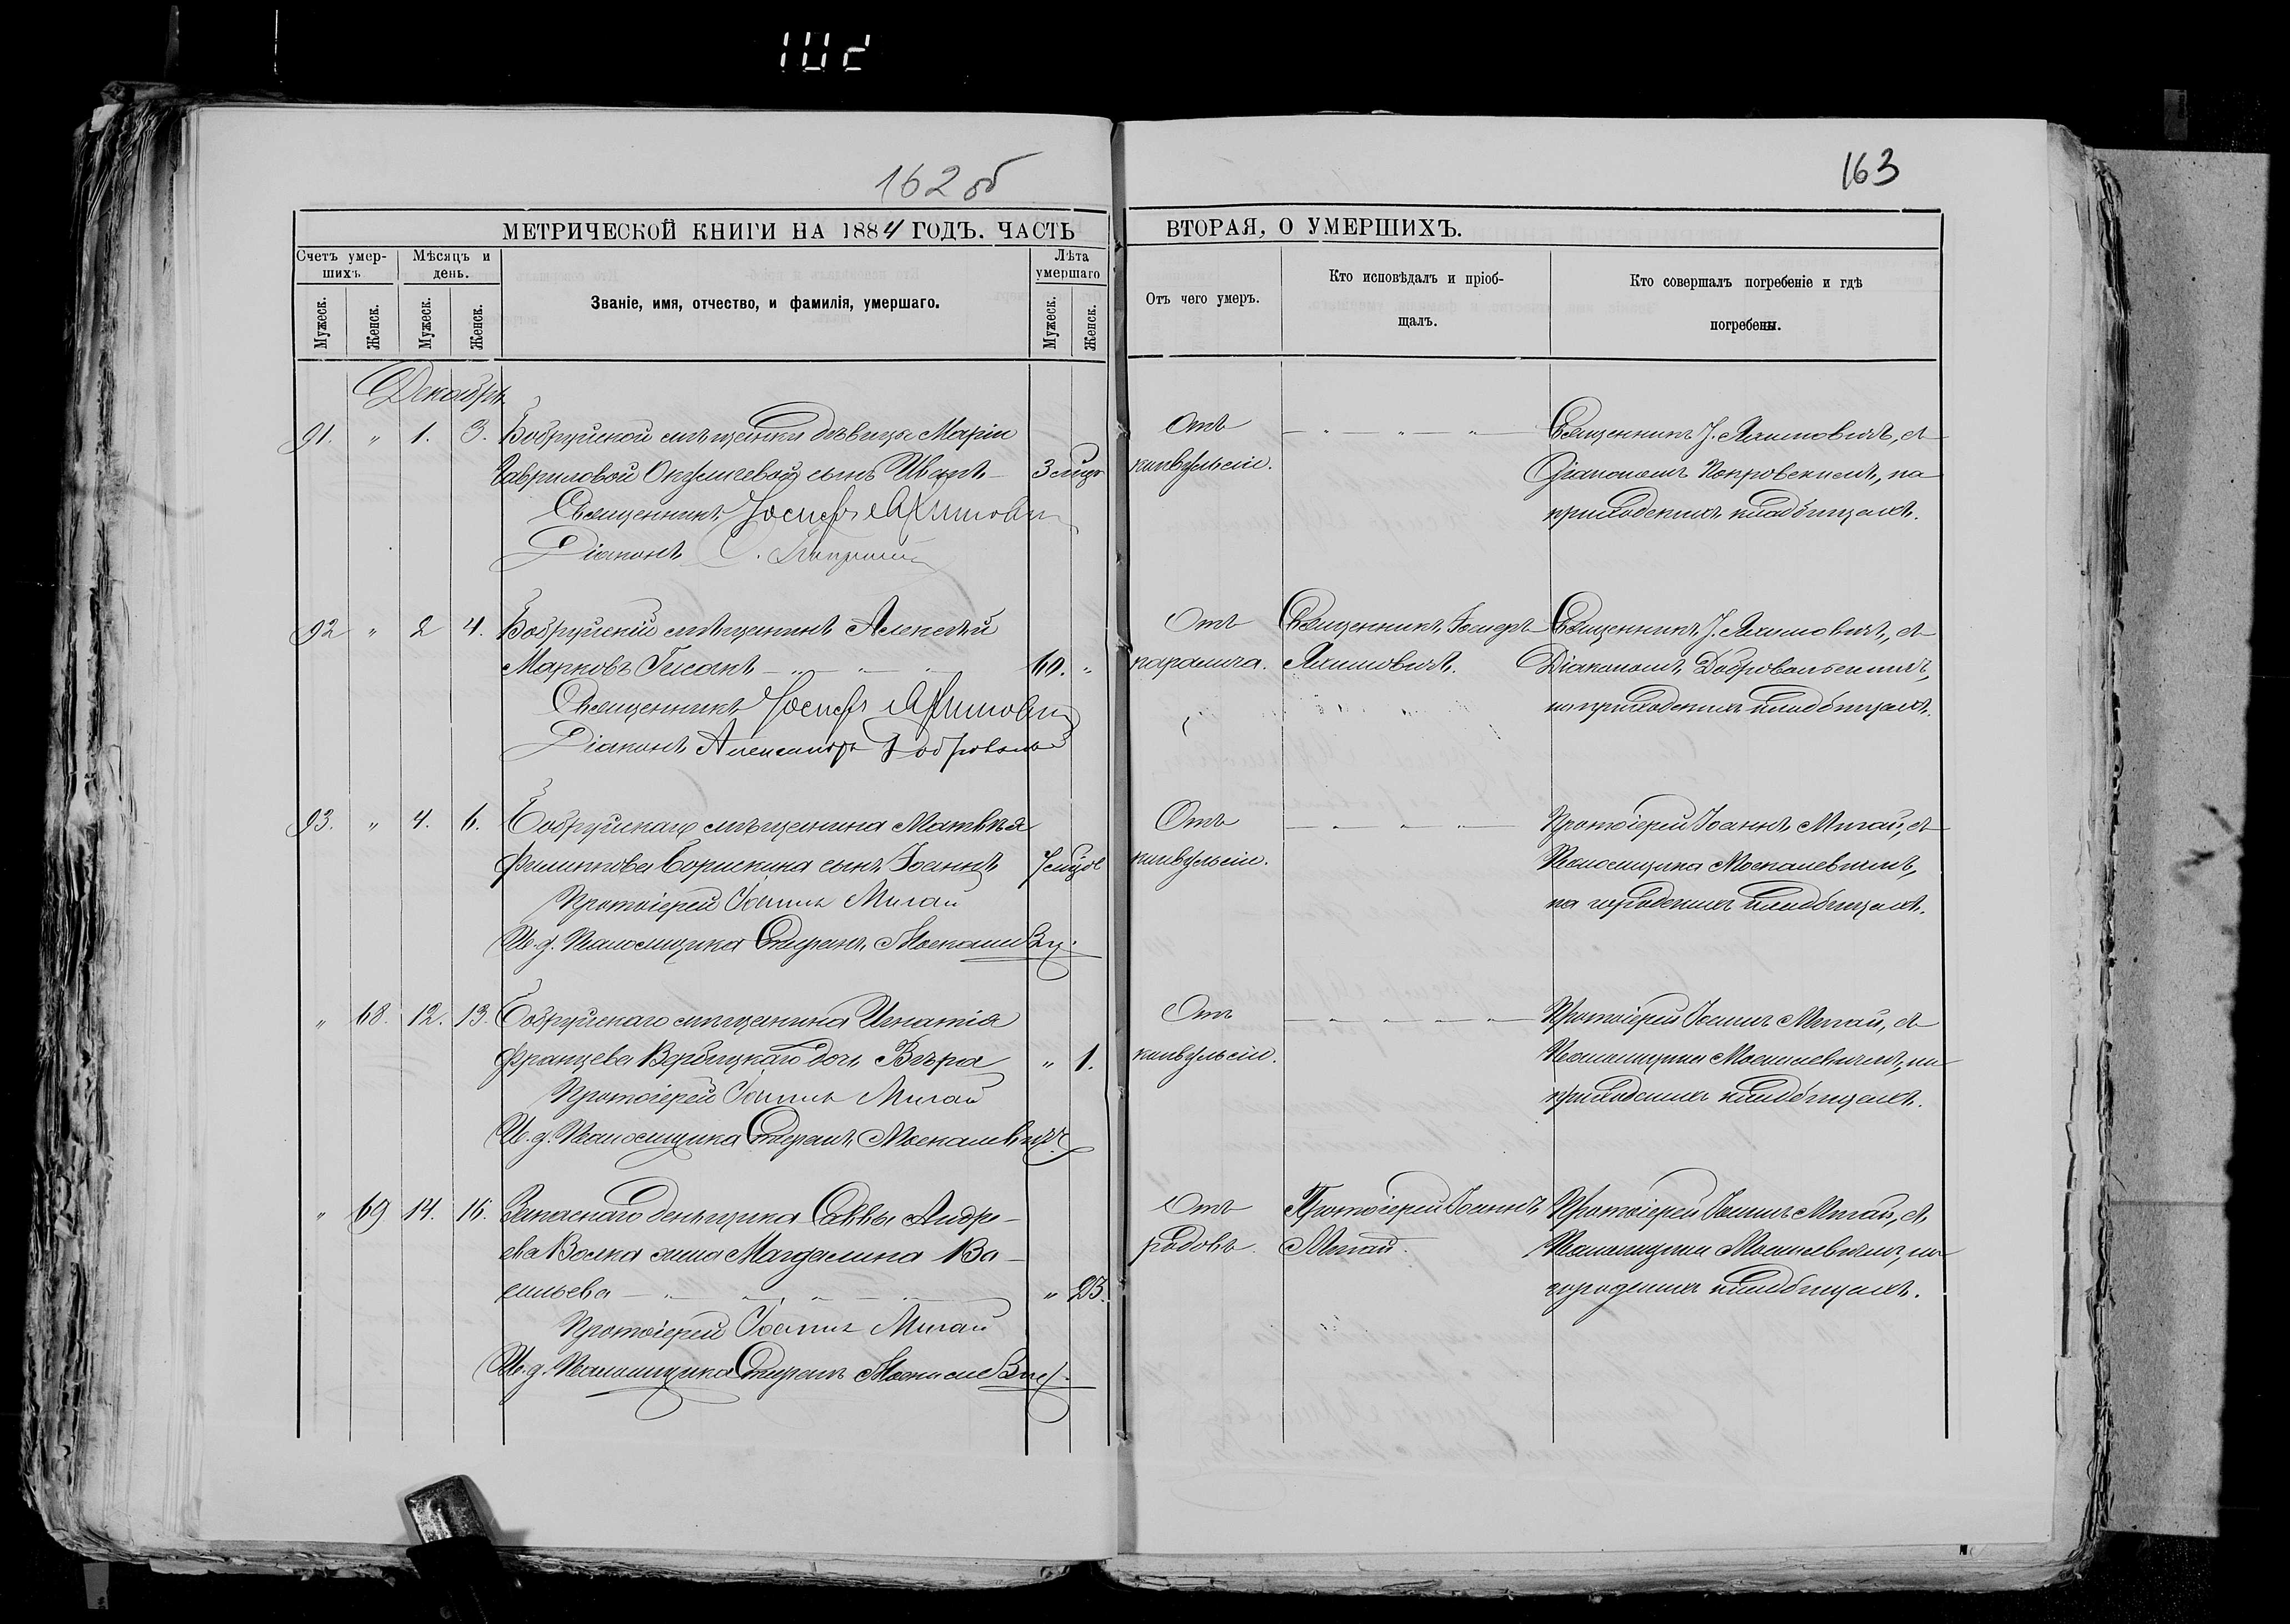 102
162 об
163
МЕТРИЧЕСКОЙ КНИГИ НА 1884 ГОДЪ. ЧАСТЬ
ВТОРАЯ, О УМЕРШИХЪ.
Счетъ умер-
шихъ.
Мѣсяцъ и
день.
Званіе, имя, отчество, и фамилія, умершаго.
Лѣта
умершаго
Мужеск.
Женск.
Мужеск.
Женск.
Мужеск.
Женск.
Отъ чего умеръ.
Кто исповѣдалъ и пріоб-
щалъ.
Кто совершалъ погребеніе и гдѣ
погребены.
Декабрь
91. " 1. 3. Бобруйской мѣщанки дѣвицы Маріи
Гавриловой сынъ Иванъ 3 мѣс
Священникъ Іосифъ Яхимович
Діаконъ
Отъ
конвульсіи.
Священникъ І. Яхимовичъ, съ
Діакономъ Покровскимъ, на
приходскихъ кладбищахъ.
92 " 2 4. Бобруйскій мѣщанинъ Алексѣй
Марковъ Гисакъ 60. "
Священникъ Іосифъ Яхимович
Діаконъ Александръ Добровольс
Отъ
паралича.
Священникъ Іосифъ
Яхимовичъ.
Священникъ І. Яхимовичъ, съ
Діакономъ Добровольскимъ,
на приходскихъ кладбищахъ.
93. " 4. 6. Бобруйскаго мѣщанина Матвѣя
Филиппова Борискина сынъ Іоаннъ 7 мѣс
Протоіерей Іоаннъ Мигай
И. д. Псаломщика Стефанъ Москалевич.
Отъ
конвульсіи.
Протоіерей Іоаннъ Мигай, съ
Псаломщика Москалевичемъ,
на городскихъ кладбищахъ.
" 68. 12. 13. Бобруйскаго мѣщанина Игнатія
Францева Вербицкаго дочь Вѣра " 1.
Протоіерей Іоаннъ Мигай
И. д. Псаломщика Стефанъ Москалевичъ
Отъ
конвульсіи.
Протоіерей Іоаннъ Мигай, съ
Псаломщика Москалевичемъ, на
приходскихъ кладбищахъ.
" 69 14. 16. Запаснаго деньщика Саввы Андре-
ева Волка жена Магдалина Ва-
сильева " 23.
Протоіерей Іоаннъ Мигай
И. д. Псаломщика Стефанъ Москалевич.
Отъ
родовъ.
Протоіерей Іоаннъ
Мигай.
Протоіерей Іоаннъ Мигай, съ
Псаломщика Москалевичемъ, на
городскихъ кладбищахъ.